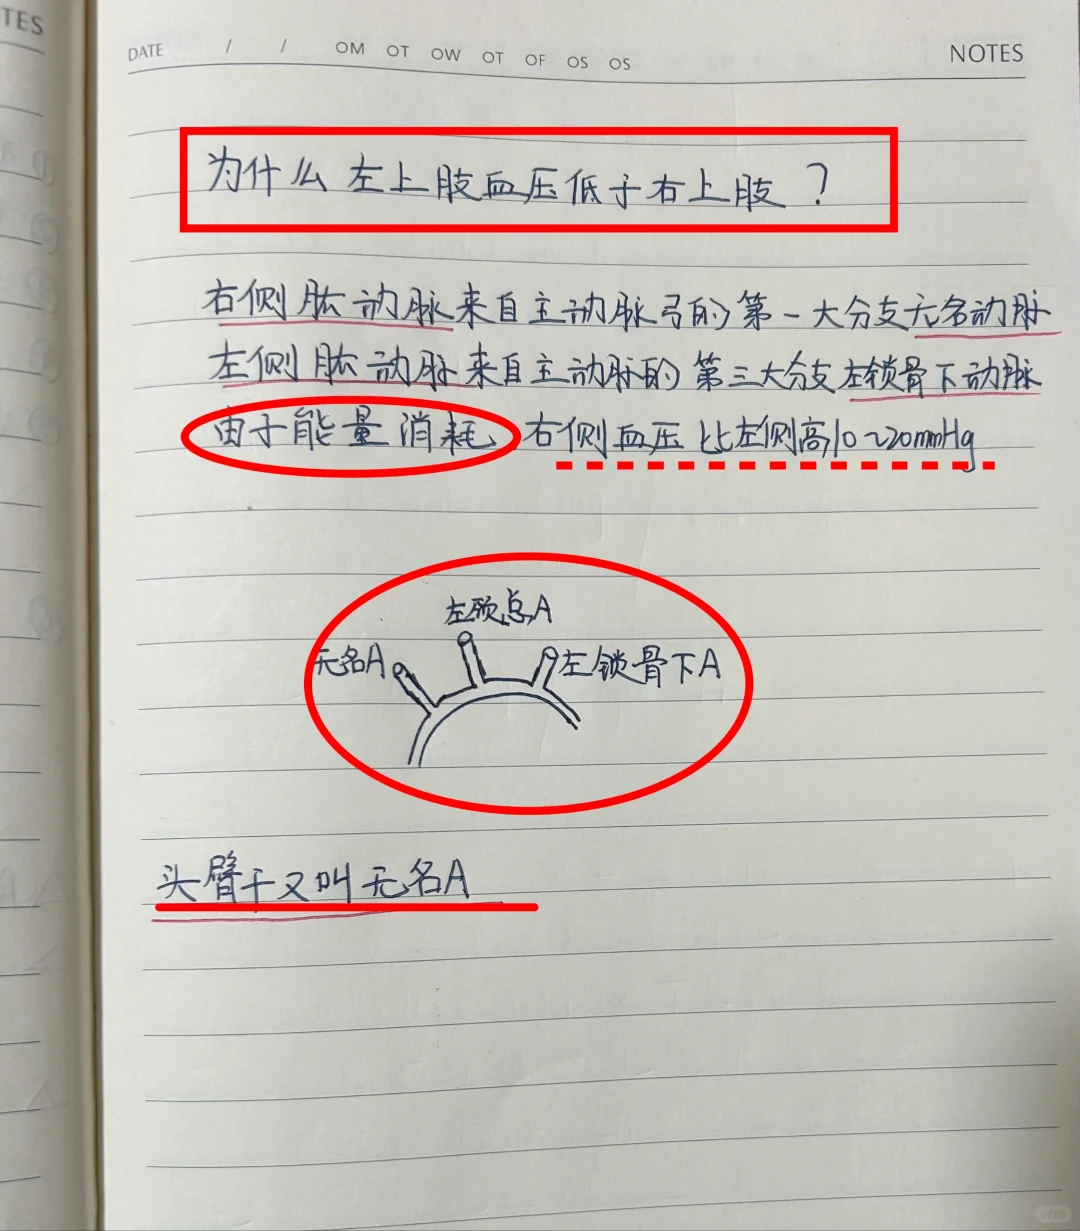 TES
DATE / / OM OT OW OT OF OS OS NOTES
为什么左上肢血压低于右上肢？
右侧肱动脉来自主动脉弓的第一大分支无名动脉
左侧肱动脉来自主动脉的第三大分支左锁骨下动脉
由于能量消耗 右侧血压比左侧高10~20mmHg
左颈总A
无名A
左锁骨下A
头臂干又叫无名A